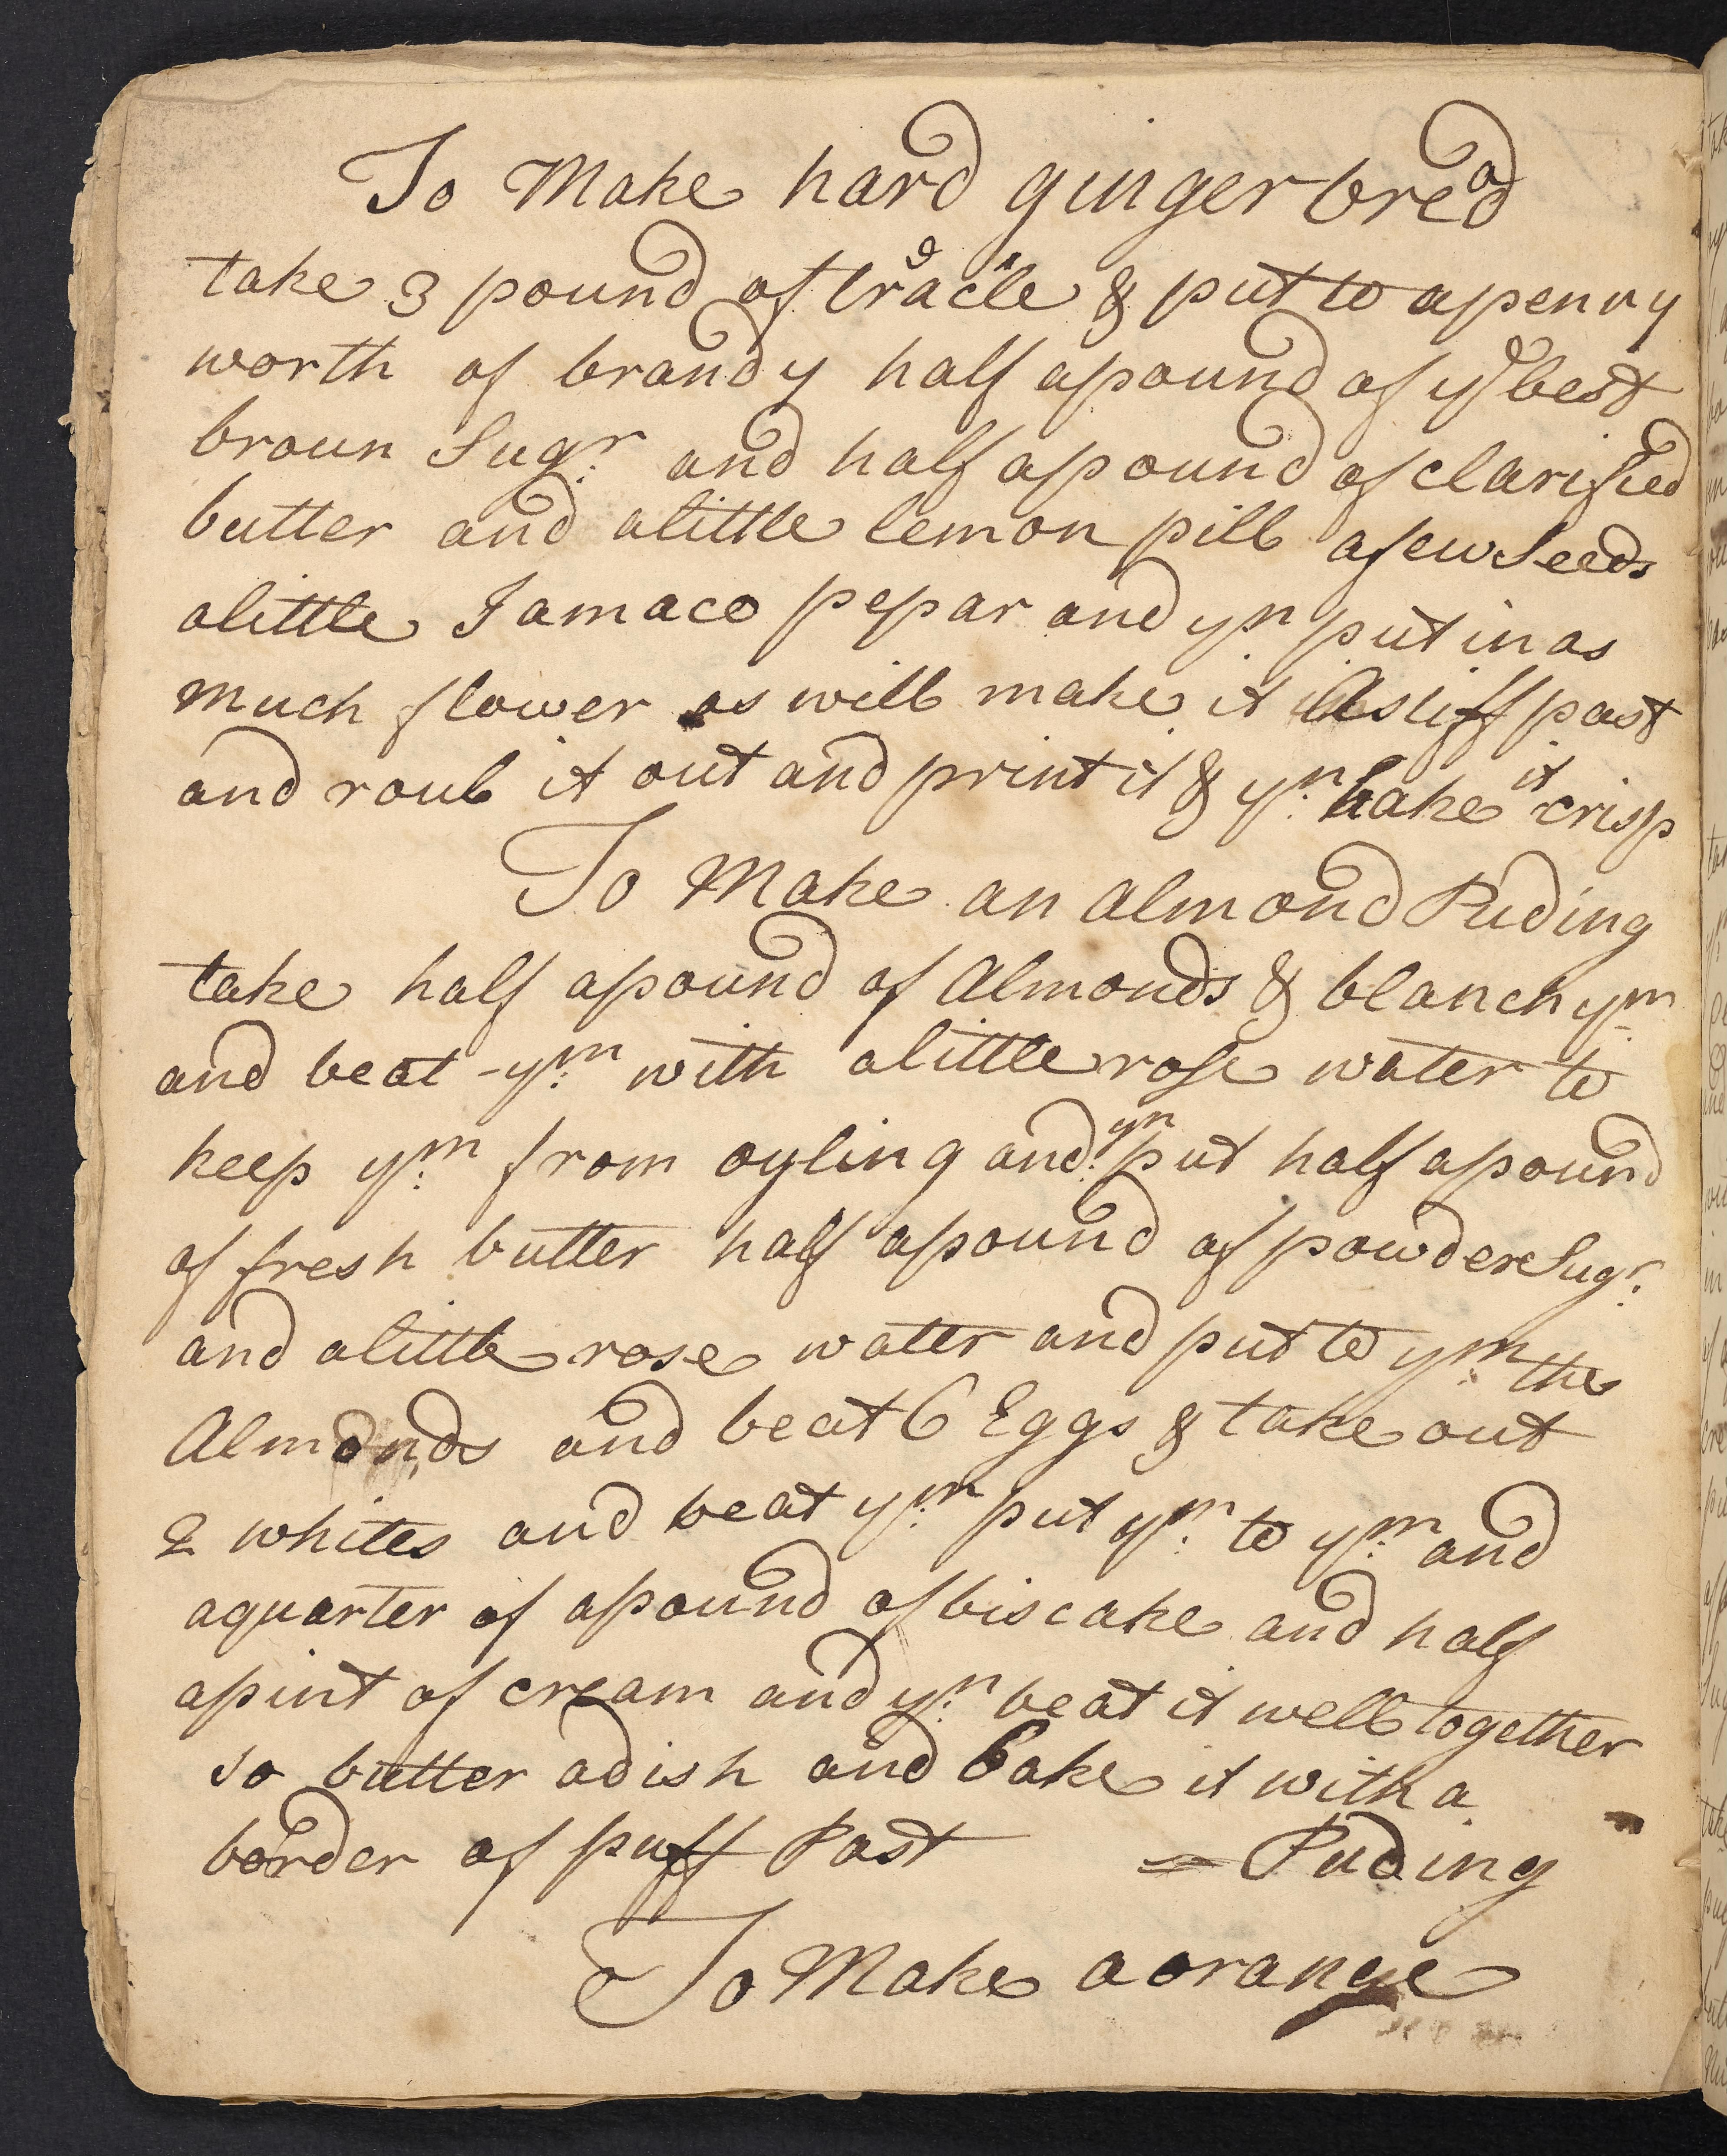 To Make hard gingerbread
take 3 pound of treacle & put to a penny
worth of brandy half a pound of ye best
broun Sugr. and half a pound of clarified
butter and a little lemon pill a few Seeds
a little Jamaco pepar and yn put in as
much flower as will make it A stiff past
and roul it out and print it & yn. bake it crisp
To Make an almond Puding
take half a pound of Almonds & blanch ym
and beat ym. with a little rose water to
keep ym. from oyling and yn put half a pound
of fresh butter half a pound of powder Sugr.
and a little rose water and put to ym. the
Almonds and beat 6 Eggs & take out
2 whites and beat ym. put ym. to ym. and
a quarter of a pound of biscake and half
a pint of cream and yn. beat it well together
so butter a dish and bake it with a
border of puff Past
= Puding
To Make a orange